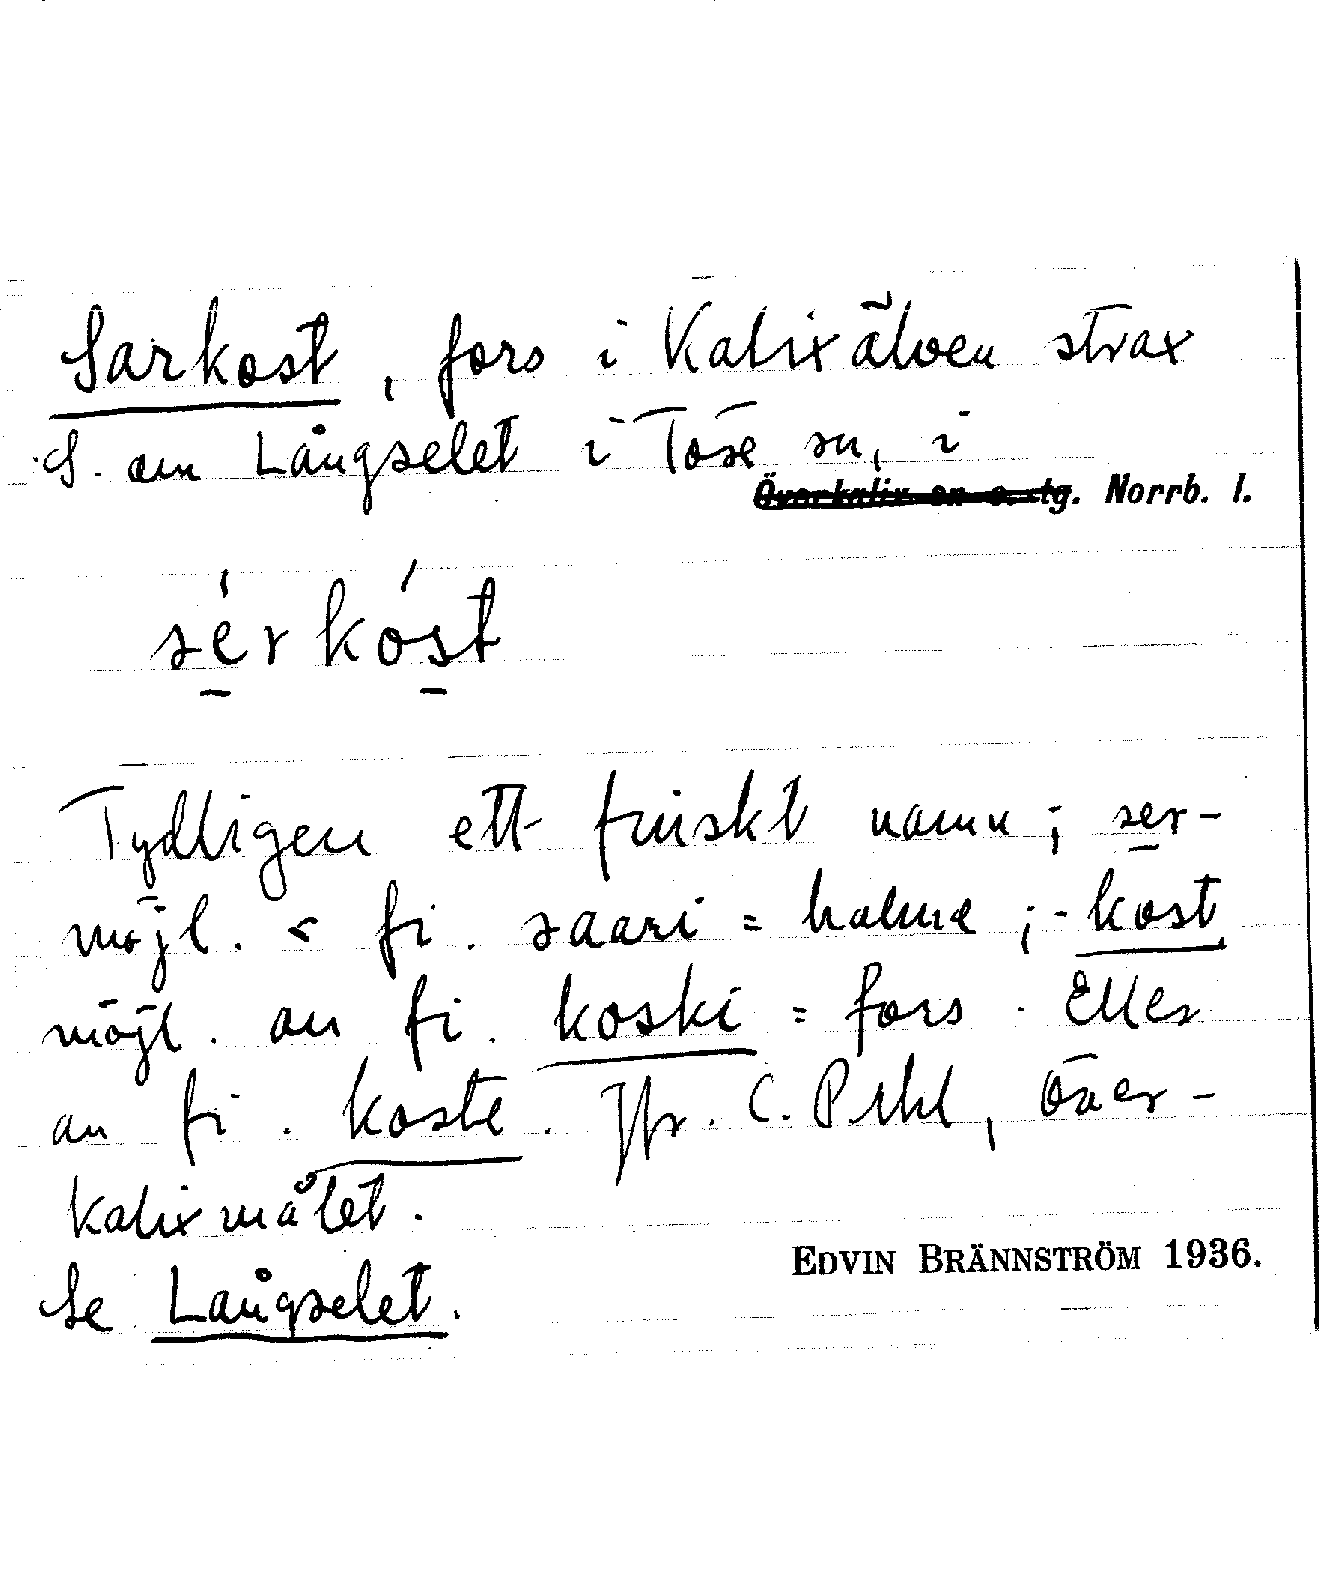 Sarkost, fors i Kalixälven strax
S. om Långselet i Töre sn, i
Överkalix sn o. tg. Norrb. l.
sérkóst
Tydligen ett finskt namn; ser-
möjl. < fi. saari = holme; -kost
möjl. av fi. koski = fors. Eller
av fi. koste. Jfr. C. Pihl, Över-
kalixmålet.
EDVIN BRÄNNSTRÖM 1936.
Se Långselet.